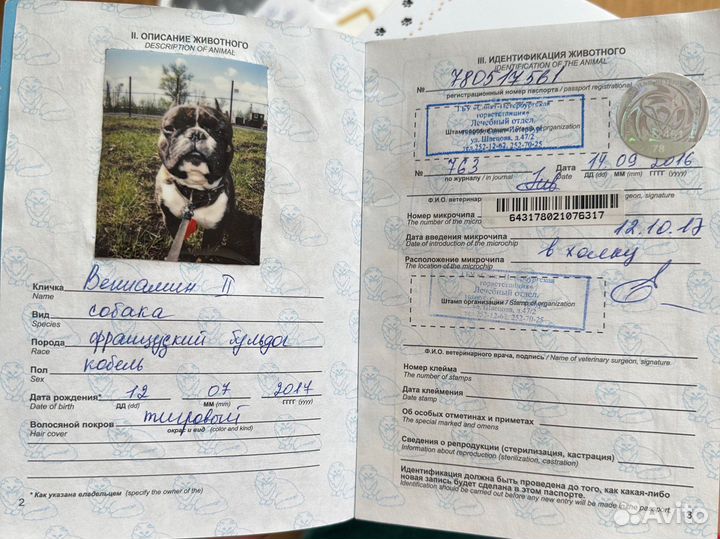 II. ОПИСАНИЕ ЖИВОТНОГО
DESCRIPTION OF ANIMAL
Кличка Вениамин II
Name
Вид собака
Species
Порода французский бульдог
Race
Пол кобель
Sex
Дата рождения* 12 07 2017
Date of birth ДД (dd) ММ (mm) ГГГГ (yyyy)
Волосяной покров тигровый
Hair cover окрас и вид (color and kind)
* Как указана владельцем (specify the owner of the)
2
III. ИДЕНТИФИКАЦИЯ ЖИВОТНОГО
IDENTIFICATION OF THE ANIMAL
№ 780517561
регистрационный номер паспорта / passport registrational
78
ГБУ «Санкт-Петербургская
горветстанция»
Лечебный отдел
Штамп организации / Stamp of organization
ул. Швецова, д.47/2
тел. 252-12-62, 252-70-25
№ 763 Дата 14 09 2016
по журналу / in journal Date ДД (dd) ММ (mm) ГГГГ (yyyy)
Ф.И.О. surgeon, signature
Номер микрочипа
The number of the 643178021076317
Дата введения микрочипа 12.10.17
Date of introduction of the microchip
Расположение микрочипа в холку
The location of the microchip
горветстанция»
Лечебный отдел
Штамп организации / Stamp of organization
ул. Швецова, д.47/2
252-70-25
Ф.И.О. ветеринарного врача, подпись / Name of veterinary surgeon, signature
Номер клейма
The number of stamps
Дата клеймения
Date of stamp
Об особых отметинах и приметах
The special marked and omens
Сведения о репродукции (стерилизация, кастрация)
Information about reproduction (sterilization, castration)
Идентификация должна быть проведена до того, как какая-либо
новая запись будет сделана в этом паспорте.
Identification should be carried out before any new entry will be made in the passport.
3
Avito